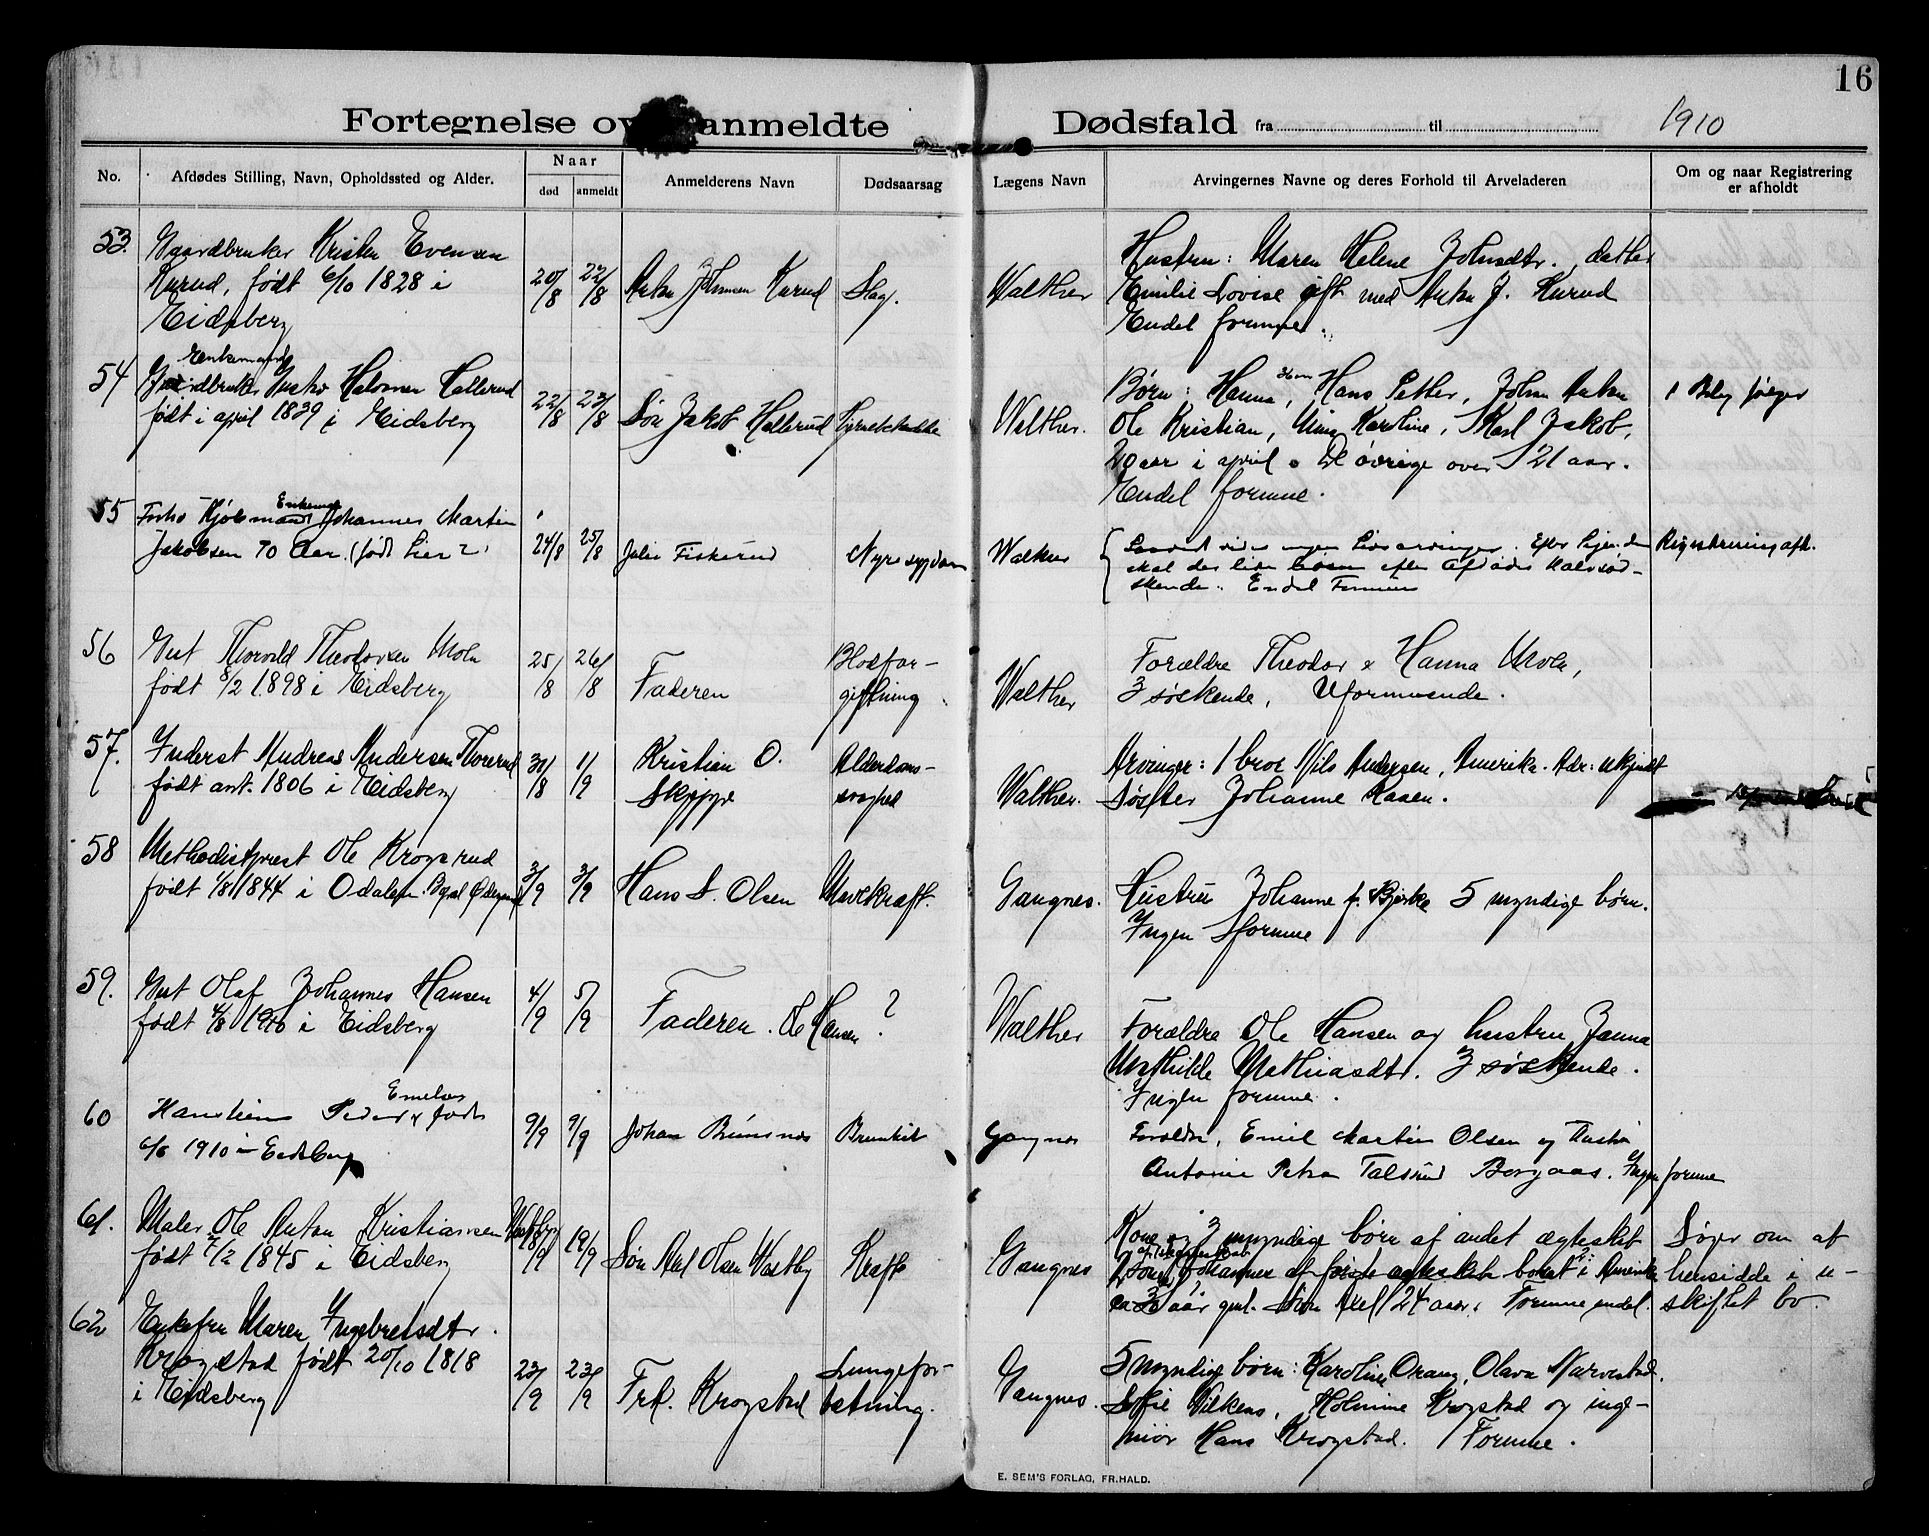 16
Fortegnelse ov anmeldte Dødsfald fra til 1910
No. Afdødes Stilling, Navn, Opholdssted og Alder. Naar Anmelderens Navn Dødsaarsag Lægens Navn Arvingernes Navne og deres Forhold til Arveladeren Om og naar Registrering
død anmeldt er afholdt
53. Gaardbruker Kristen Evensen
Kurud, født 6/10 1828 i
Eidsberg
20/8 22/8 Anton Johnsen Kurud Slag. Walther
Hustru: Maren Helene Johnsdtr. datter
Emilie Lovise gift med Anton J. Kurud
Endel formue.
54 Enkemand
Gaardbruker Halvorsen Hallerud
født i april 1839 i Eidsberg
22/8 23/8 Søn Jakob Hallerud Walther.
Børn: Hanna, Hans Petter, Johan Anton
Ole Kristian, Karoline, Karl Jakob,
20 aar i april. De øvrige over 21 aar.
Endel formue.
1 Bilag følger
55 Enkemand
Kjøbmand Johannes Martin
Jakobsen 70 Aar. (født Lier?)
24/8 25/8 Julie Fiskerud Nyresygdom Walther
Saavidt vides ingen Livsarvinger. Efter Sigende
skal der leve efter Afdødes Halvsød-
skende. Endel Formue
Registrering afh.
56 Thorvald Theodorsen Moen
født 8/2 1898 i Eidsberg
25/8 26/8 Faderen Blodfor-
giftning Walther
Forældre Theodor & Hanna Moen,
3 søskende, Uformuende.
57. Inderst Andreas Andersen Thorerud
født ant. 1806 i Eidsberg
30/8 1/9 Kristian O.
Skjeppe
Alderdoms-
svaghed Walther.
Arvinger: 1 bror Nils Andersen, Amerika. Adr: ukjendt
Søster Johanne Kaasen.
58 Methodistprest Ole Krogsrud
født 1/8 1844 i Odalen.
3/9 3/9 Hans L. Olsen Mavekræft. Gangnes.
Hustru Johanne f. Bjerke 5 myndige børn.
Ingen formue
59. Olaf Johannes Hansen
født 4/8 1910 i Eidsberg
4/9 5/9 Faderen. Ole Hansen ? Walther
Forældre Ole Hansen og hustru Janna
Mathilde Mathiasdtr. 3 søskende.
Ingen formue.
60 Emelsen
Peder født
6/6 1910 i Eidsberg
9/9 9/9 Johan Gangnes
Forældre, Emil Martin Olsen og Hustru
Antonie Petra Borgaas. Ingen formue
61. Maler Ole Anton Kristiansen Vestby
født 7/2 1845 i Eidsberg
18/9 19/9 Søn Axel Olsen Vestby Kræft Gangnes
Kone og 3 myndige børn af andet ægteskab
1 søn Johannes af første ægteskab bosat i Amerika
ca 30 aar gml. Søn Axel 24 aar. Formue endel.
Søger om at
hensidde i u-
skiftet bo.
62 Enkefru Maren Ingebretsdtr.
Krogstad født 20/10 1818
i Eidsberg
23/9 23/9 Frk. Krogstad Lungefor-
betning. Gangnes.
5 myndige børn: Karoline Orang, Olava
Sofie Wilkens, Holmine Krogstad og inge-
niør Hans Krogstad. Formue.
E. SEM'S FORLAG, FR.HALD.